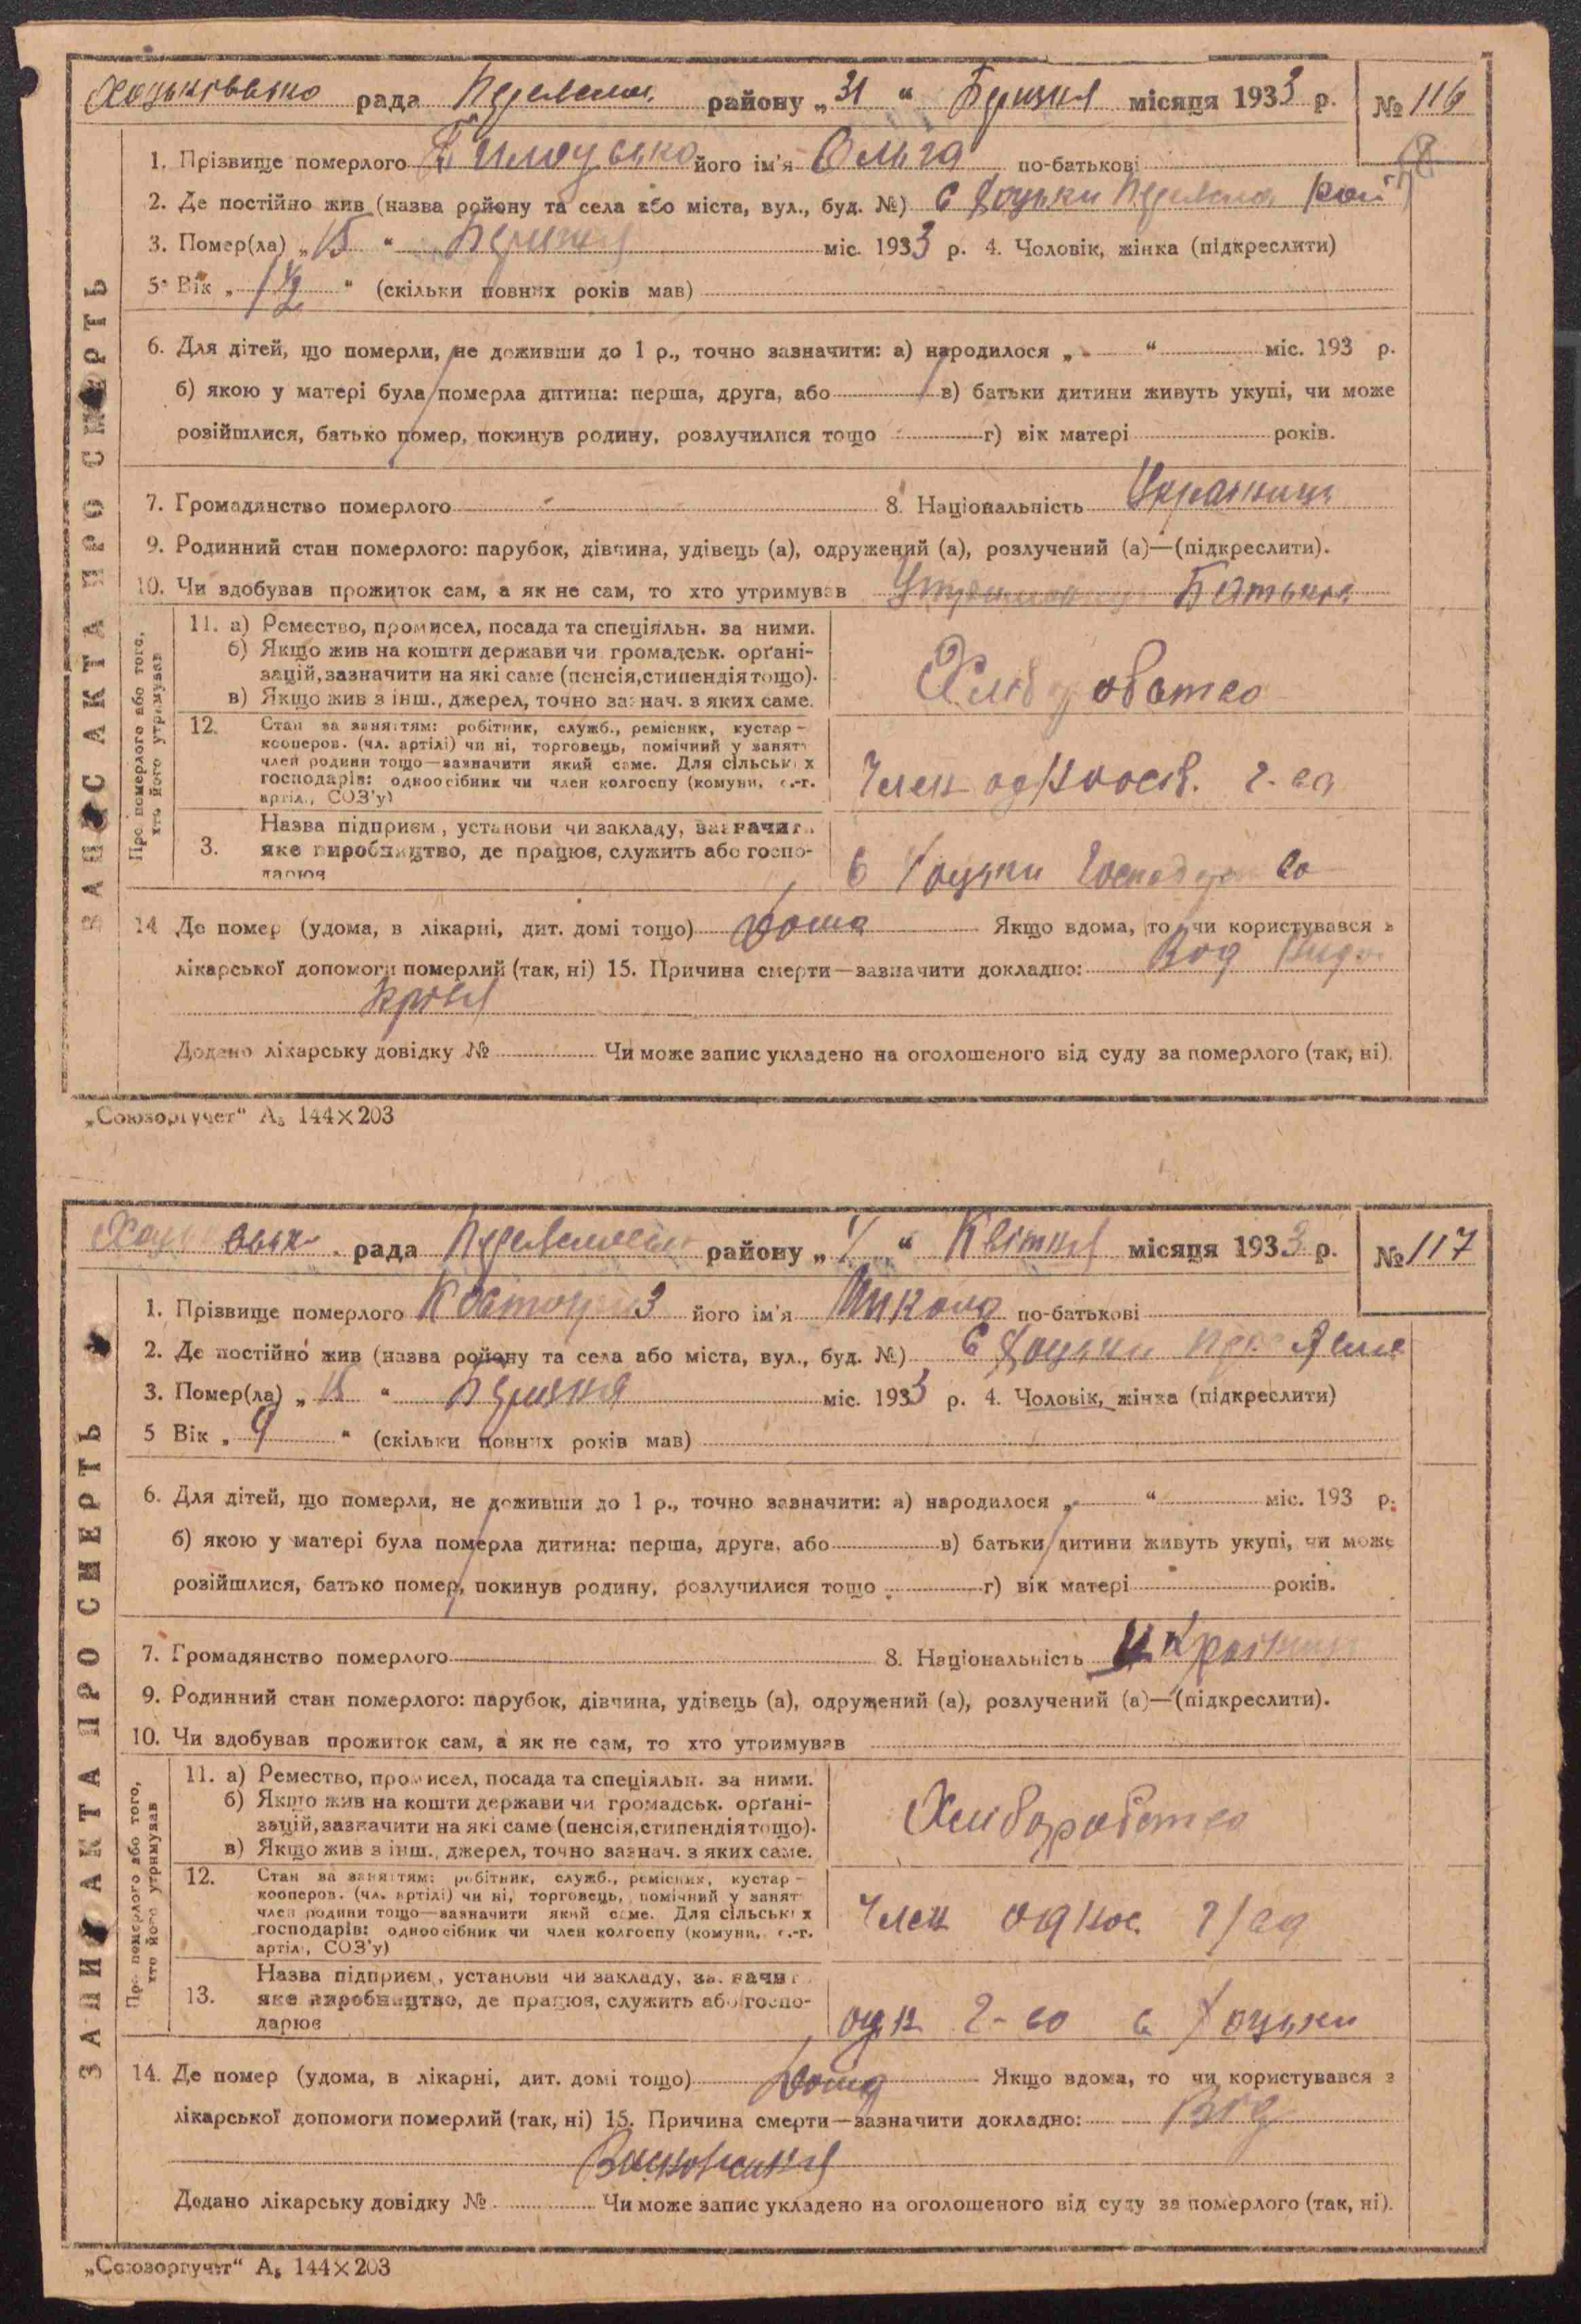 рада району „31“ місяця 1933 р. № 116
ЗАПИС АКТА ПРО СМЕРТЬ
1. Прізвище померлого його ім'я Ольга по-батькові
2. Де постійно жив (назва району та села або міста, вул., буд. №) с Хоцьки рай
3. Помер(ла) „15“ міс. 1933 р. 4. Чоловік, жінка (підкреслити)
5. Вік „1½“ (скільки повних років мав)
6. Для дітей, що померли, не доживши до 1 р., точно зазначити: а) народилося „ “ міс. 193 р.
б) якою у матері була померла дитина: перша, друга, або в) батьки дитини живуть укупі, чи може
розійшлися, батько помер, покинув родину, розлучилися тощо г) вік матері років.
7. Громадянство померлого 8. Національність
9. Родинний стан померлого: парубок, дівчина, удівець (а), одружений (а), розлучений (а)—(підкреслити).
10. Чи здобував прожиток сам, а як не сам, то хто утримував
Про померлого або того, хто його утримував
11. а) Ремество, промисел, посада та спеціяльн. за ними.
б) Якщо жив на кошти держави чи громадськ. орґані-
зацій, зазначити на які саме (пенсія, стипендія тощо).
в) Якщо жив з інш., джерел, точно зазнач. з яких саме.
12. Стан за заняттям: робітник, служб., ремісник, кустар-
кооперов. (чл. артілі) чи ні, торговець, помічний у занятт
член родини тощо—зазначити який саме. Для сільських
господарів: одноосібник чи член колгоспу (комуни, с.-г.
артіл., СОЗ'у)
Член одноосіб. г-ва
Назва підприєм., установи чи закладу, зазначит.
3. яке виробництво, де працює, служить або госпо-
дарює
с Хоцьки
14 Де помер (удома, в лікарні, дит. домі тощо) дома Якщо вдома, то чи користувався з
лікарської допомоги померлий (так, ні) 15. Причина смерти—зазначити докладно:
Додано лікарську довідку № Чи може запис укладено на оголошеного від суду за померлого (так, ні).
„Союзоргучет“ А₅ 144×203
рада району „1“ Квітня місяця 1933 р. № 117
ЗАПИС АКТА ПРО СМЕРТЬ
1. Прізвище померлого його ім'я Микола по-батькові
2. Де постійно жив (назва району та села або міста, вул., буд. №) с Хоцьки
3. Помер(ла) „15“ міс. 1933 р. 4. Чоловік, жінка (підкреслити)
5 Вік „9“ (скільки повних років мав)
6. Для дітей, що померли, не доживши до 1 р., точно зазначити: а) народилося „ “ міс. 193 р.
б) якою у матері була померла дитина: перша, друга, або в) батьки дитини живуть укупі, чи може
розійшлися, батько помер, покинув родину, розлучилися тощо г) вік матері років.
7. Громадянство померлого 8. Національність
9. Родинний стан померлого: парубок, дівчина, удівець (а), одружений (а), розлучений (а)—(підкреслити).
10. Чи здобував прожиток сам, а як не сам, то хто утримував
Про померлого або того, хто його утримував
11. а) Ремество, промисел, посада та спеціяльн. за ними.
б) Якщо жив на кошти держави чи громадськ. орґані-
зацій, зазначити на які саме (пенсія, стипендія тощо).
в) Якщо жив з інш., джерел, точно зазнач. з яких саме.
12. Стан за заняттям: робітник, служб., ремісник, кустар-
кооперов. (чл. артілі) чи ні, торговець, помічний у занят
член родини тощо—зазначити який саме. Для сільських
господарів: одноосібник чи член колгоспу (комуни, с.-г.
артіл., СОЗ'у)
Член
Назва підприєм., установи чи закладу, зазначит.
13. яке виробництво, де працює, служить або госпо-
дарює
г-во с Хоцьки
14. Де помер (удома, в лікарні, дит. домі тощо) дома Якщо вдома, то чи користувався з
лікарської допомоги померлий (так, ні) 15. Причина смерти—зазначити докладно: Від
Додано лікарську довідку № Чи може запис укладено на оголошеного від суду за померлого (так, ні).
„Союзоргучет“ А₅ 144×203